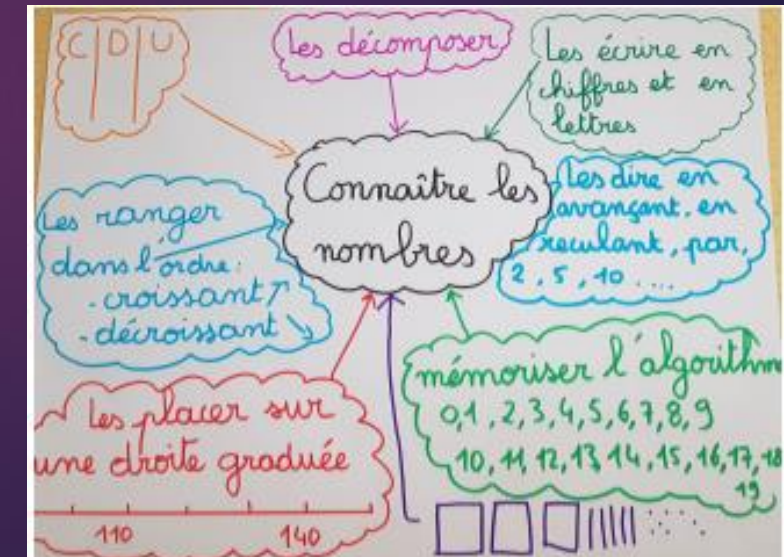 C | D | U
Les décomposer
Les écrire en
chiffres et en
lettres
Connaître les
nombres
Les ranger
dans l'ordre:
- croissant ↗
- décroissant ↘
Les dire en
avançant, en
reculant, par,
2, 5, 10 ....
Les placer sur
une droite graduée
110 140
mémoriser l'algorithm
0,1,2,3,4,5,6,7,8,9
10, 11, 12, 13, 14, 15, 16, 17, 18
19